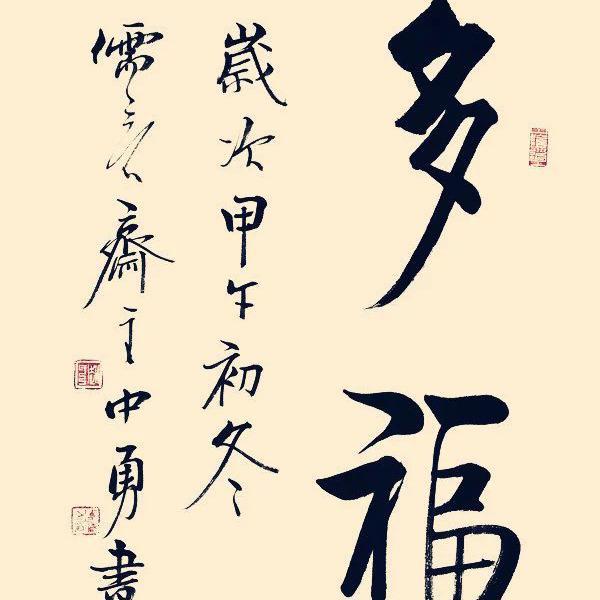 多福
歲次甲午初冬
儒彥齋主中勇書